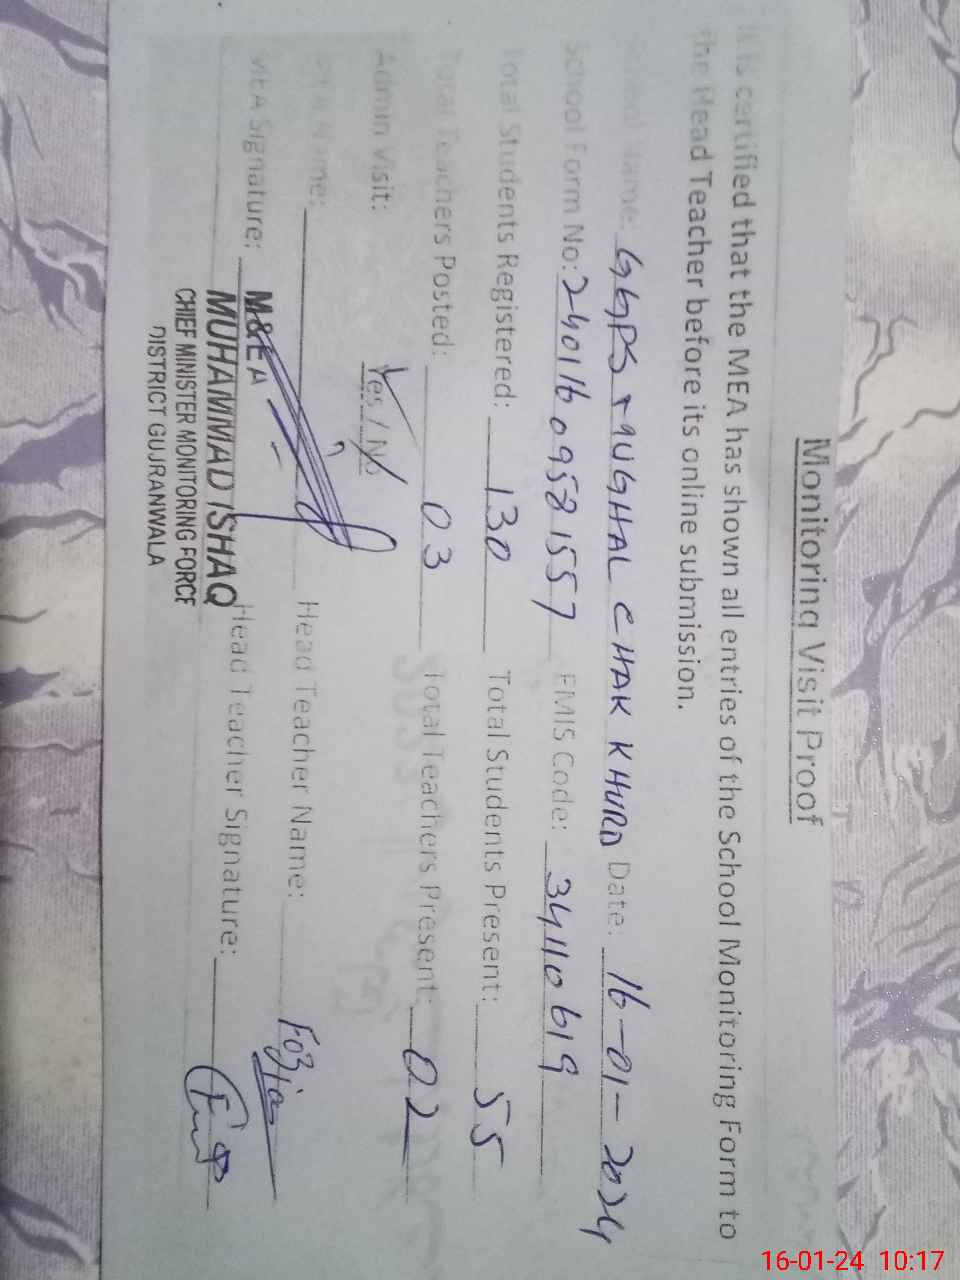 Monitoring Visit Proof
It is certified that the MEA has shown all entries of the School Monitoring Form to
the Head Teacher before its online submission.
School Name: GGPS MUGHAL CHAK KHURD Date: 16-01-2024
School Form No: 24011609581557 EMIS Code: 34110619
Total Students Registered: 130 Total Students Present: 55
Total Teachers Posted: 03 Total Teachers Present: 02
Admin Visit: Yes / No
MEA Name: Head Teacher Name: Fozia
MEA Signature: Head Teacher Signature:
M&EA
MUHAMMAD ISHAQ
CHIEF MINISTER MONITORING FORCE
DISTRICT GUJRANWALA
16-01-24 10:17